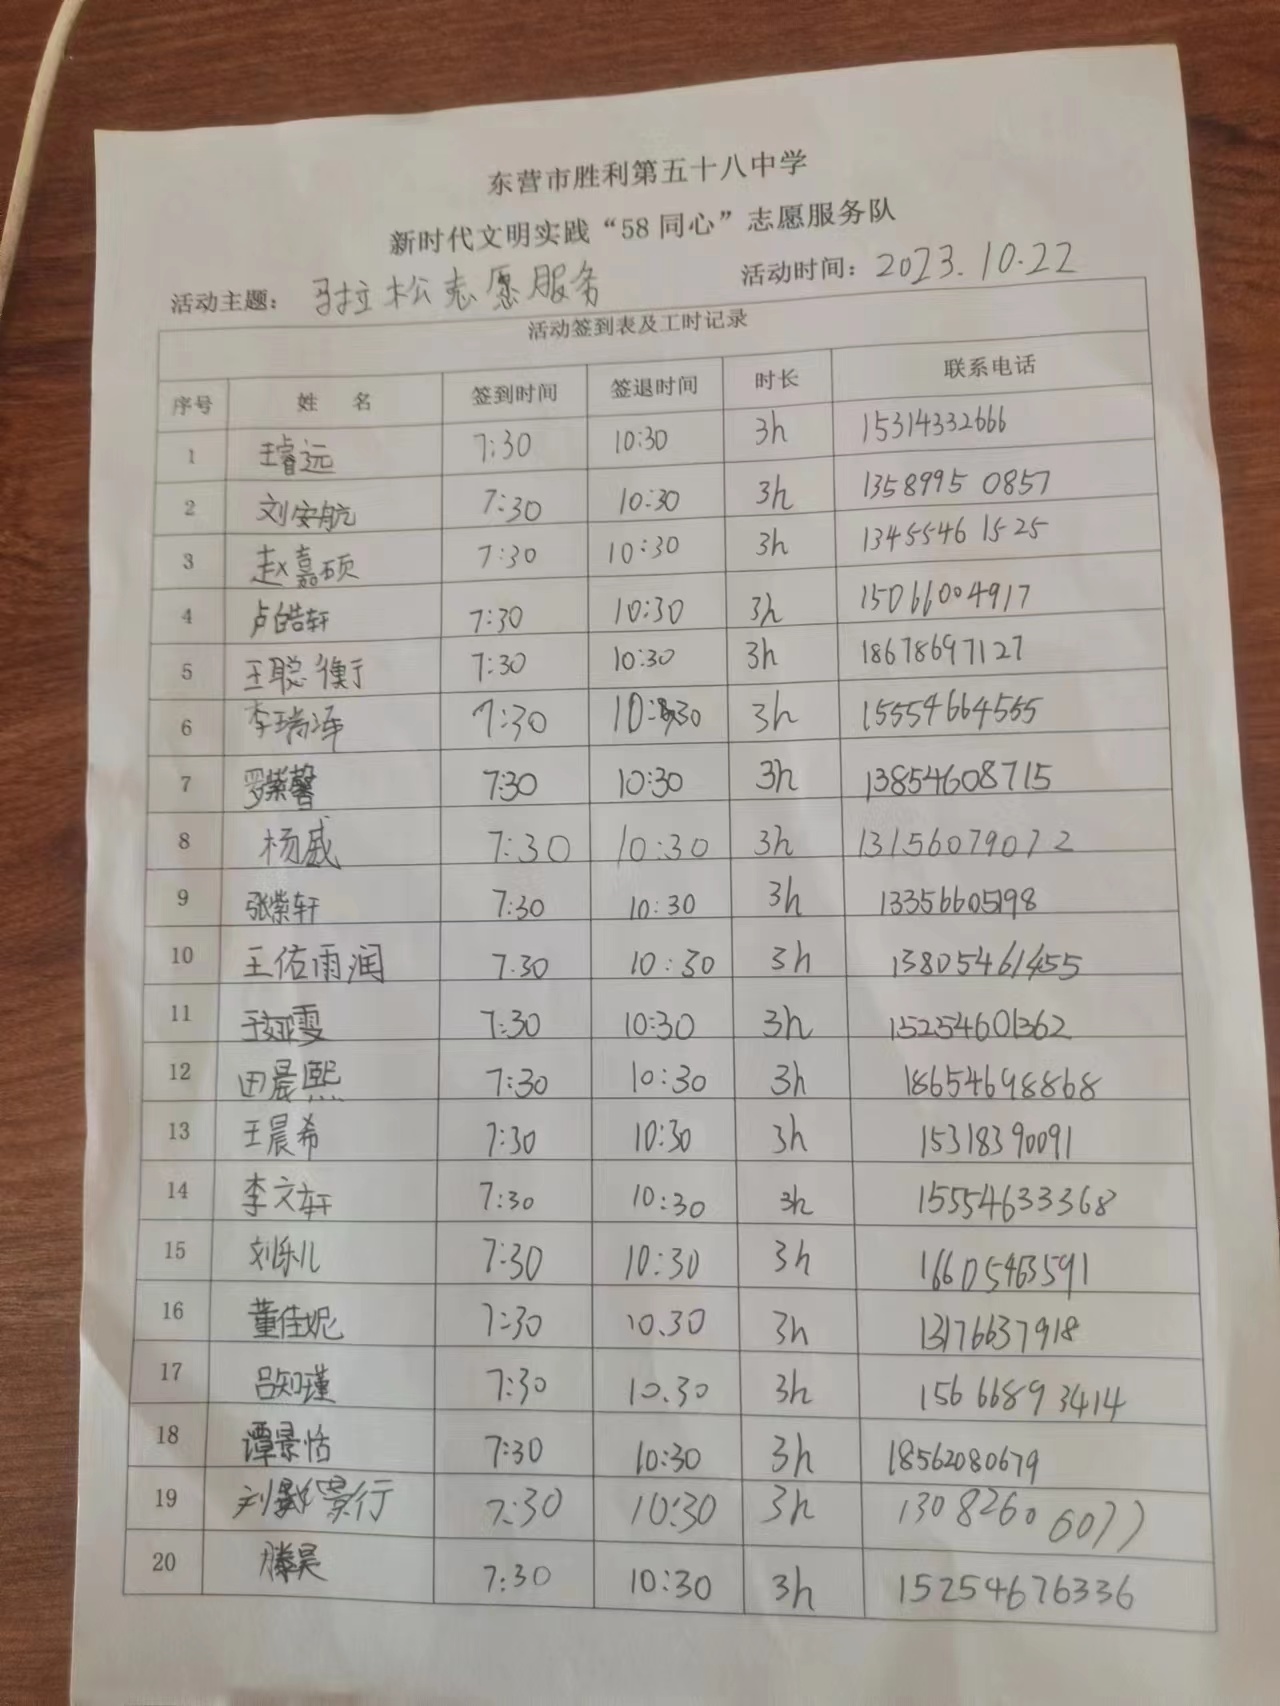 东营市胜利第五十八中学
新时代文明实践“58 同心”志愿服务队
活动主题： 马拉松志愿服务 活动时间：2023.10.22
活动签到表及工时记录
序号 姓 名 签到时间 签退时间 时长 联系电话
1 王睿远 7:30 10:30 3h 15314332666
2 刘安航 7:30 10:30 3h 1358995 0857
3 赵嘉硕 7:30 10:30 3h 1345546 1525
4 卢皓轩 7:30 10:30 3h 15066004917
5 王聪衡 7:30 10:30 3h 18678697127
6 李瑞泽 7:30 10:30 3h 15554664555
7 罗紫馨 7:30 10:30 3h 13854608715
8 杨威 7:30 10:30 3h 13156079072
9 张紫轩 7:30 10:30 3h 13356605198
10 王佑雨润 7.30 10:30 3h 13805461455
11 7:30 10:30 3h 15254601362
12 田晨熙 7:30 10:30 3h 18654698868
13 王晨希 7:30 10:30 3h 15318390091
14 李文轩 7:30 10:30 3h 15554633368
15 刘乐儿 7:30 10:30 3h 16605463591
16 董佳妮 7:30 10.30 3h 13176637918
17 吕知瑾 7:30 10.30 3h 156 6689 3414
18 谭景恬 7:30 10:30 3h 18562080679
19 刘景行 7:30 10:30 3h 130 8260 6077
20 滕昊 7:30 10:30 3h 15254676336